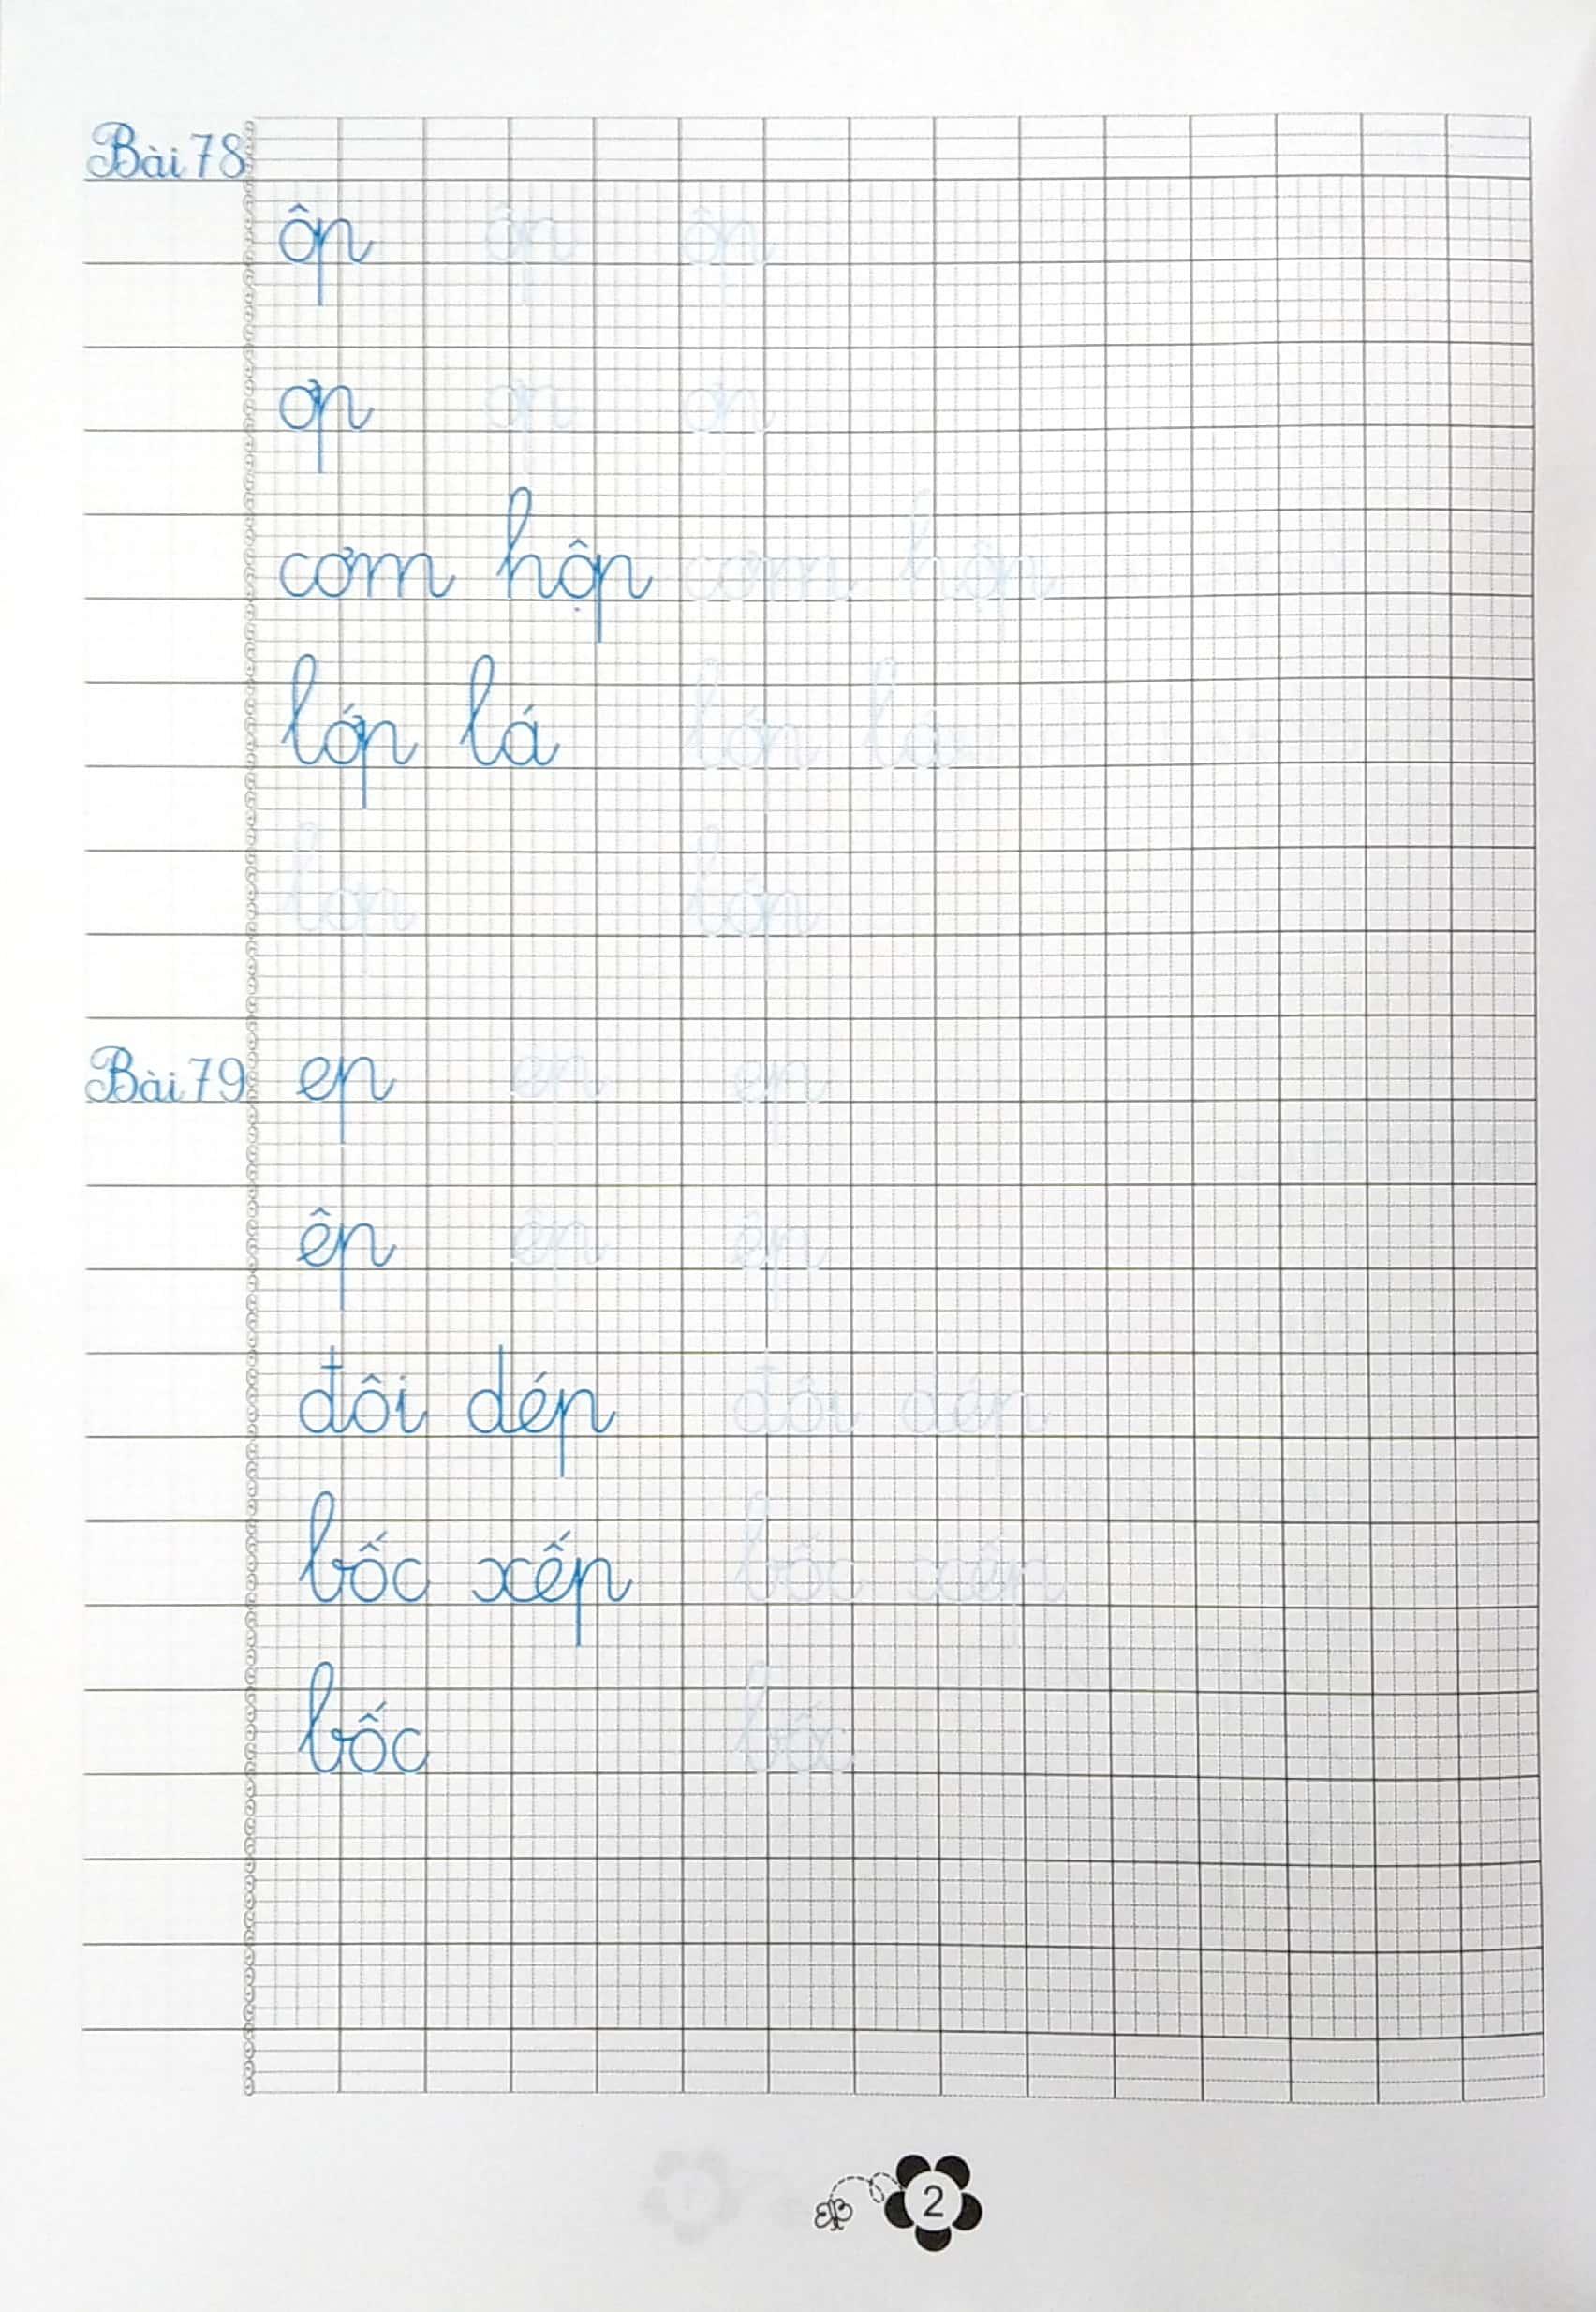 Bài 78
ôp ôp ôp
ơp ơp ơp
cơm hộp cơm hộp
lớp lá lớp lá
lớp lớp
Bài 79 ep ep ep
êp êp êp
đôi dép đôi dép
bốc xếp bốc xếp
bốc bốc
2